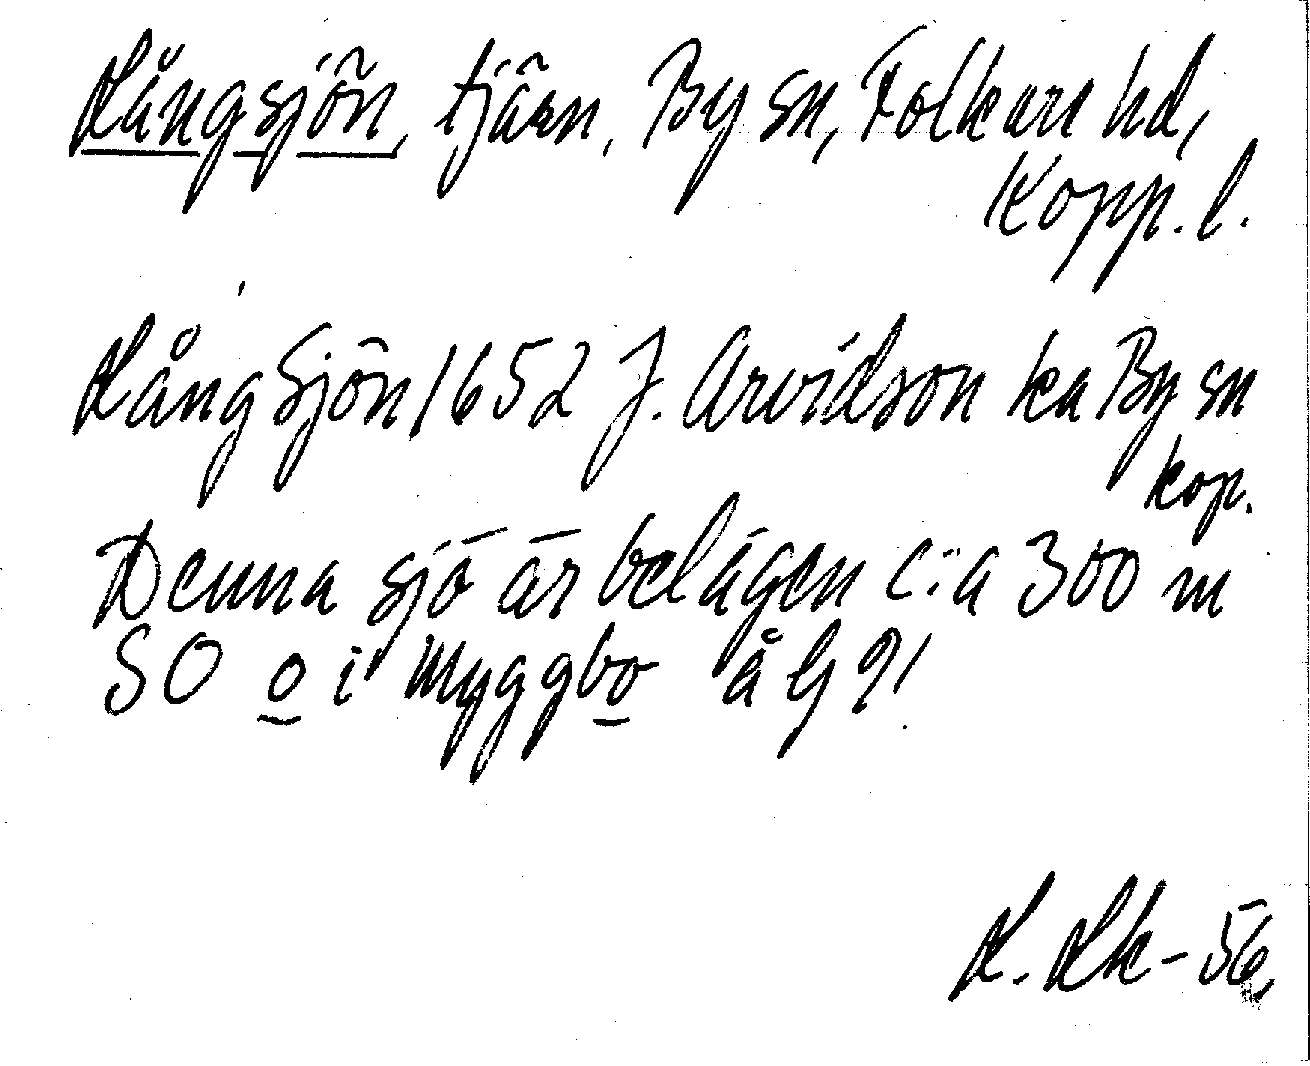 Långsjön, tjärn, By sn, Folkare hd,
Kopp. l.
Lång Sjön 1652 J. Arvidson ka By sn
kop.
Denna sjö är belägen c:a 300 m
SO o i Myggbo å G 91
L. Lk - 56